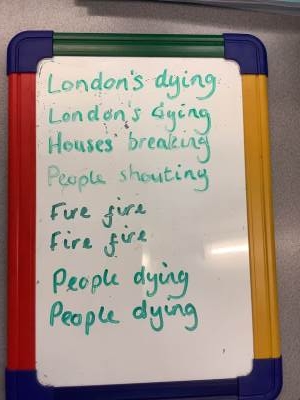 London's dying
London's dying
Houses breaking
People shouting
Fire fire
Fire fire
People dying
People dying